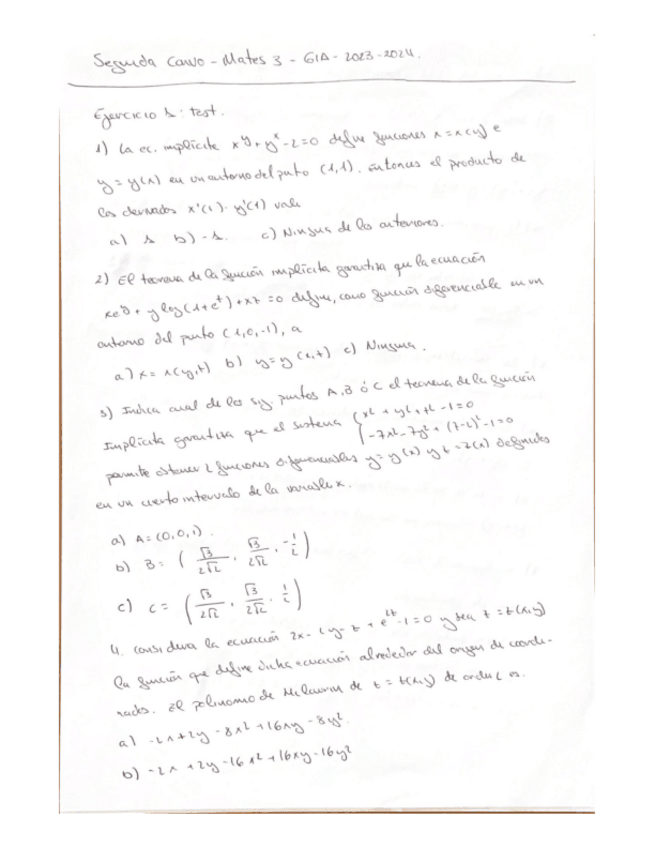 Segunda Convo - Mates 3 - GIA - 2023-2024.
Ejercicio 1: test.
1) La ec. implícite x^y + y^x - 2 = 0 define funciones x = x(y) e
y = y(x) en un entorno del punto (1,1). entonces el producto de
las derivadas x'(1) · y'(1) vale
a) 1 b) -1. c) Ninguna de las anteriores.
2) El teorema de la función implícita garantiza que la ecuación
xe^y + y log(1+e^z) + xz = 0 define, como función diferenciable en un
entorno del punto (1,0,-1), a
a) x = x(y,z) b) y = y(x,z) c) Ninguna.
3) Indica cual de los sig. puntos A, B ó C el teorema de la función
Implícita garantiza que el sistema { x² + y² + z² - 1 = 0
-7x² - 7y² + (7-z)² - 1 = 0
permite obtener 2 funciones diferenciables y = y(x) y z = z(x) definidas
en un cierto intervalo de la variable x.
a) A = (0,0,1).
b) B = (√3/2√2, √3/2√2, -1/2)
c) C = (√3/2√2, √3/2√2, 1/2)
4. Considera la ecuación 2x - 2y - z + e^2z - 1 = 0 y sea z = z(x,y)
la función que define dicha ecuación alrededor del origen de coorde-
nadas. El polinomio de McLaurin de z = z(x,y) de orden 2 es.
a) -2x + 2y - 8x² + 16xy - 8y².
b) -2x + 2y - 16x² + 16xy - 16y²